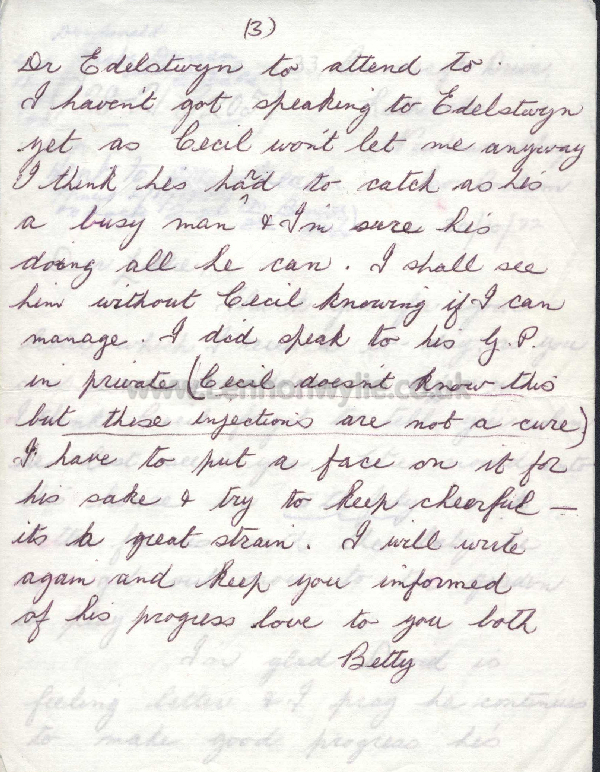 (3)
Dr Edelstwyn to attend to.
I haven't got speaking to Edelstwyn
yet as Cecil won't let me anyway
I think hes hard to catch as he's
a busy man & I'm sure he's
doing all he can. I shall see
him without Cecil knowing if I can
manage. I did speak to his G.P.
in private (Cecil doesnt know this
but these injections are not a cure)
I have to put a face on it for
his sake & try to keep cheerful —
its a great strain. I will write
again and keep you informed
of his progress love to you both
Betty
I'm glad is
feeling better & I pray he continues
to make good progress he's